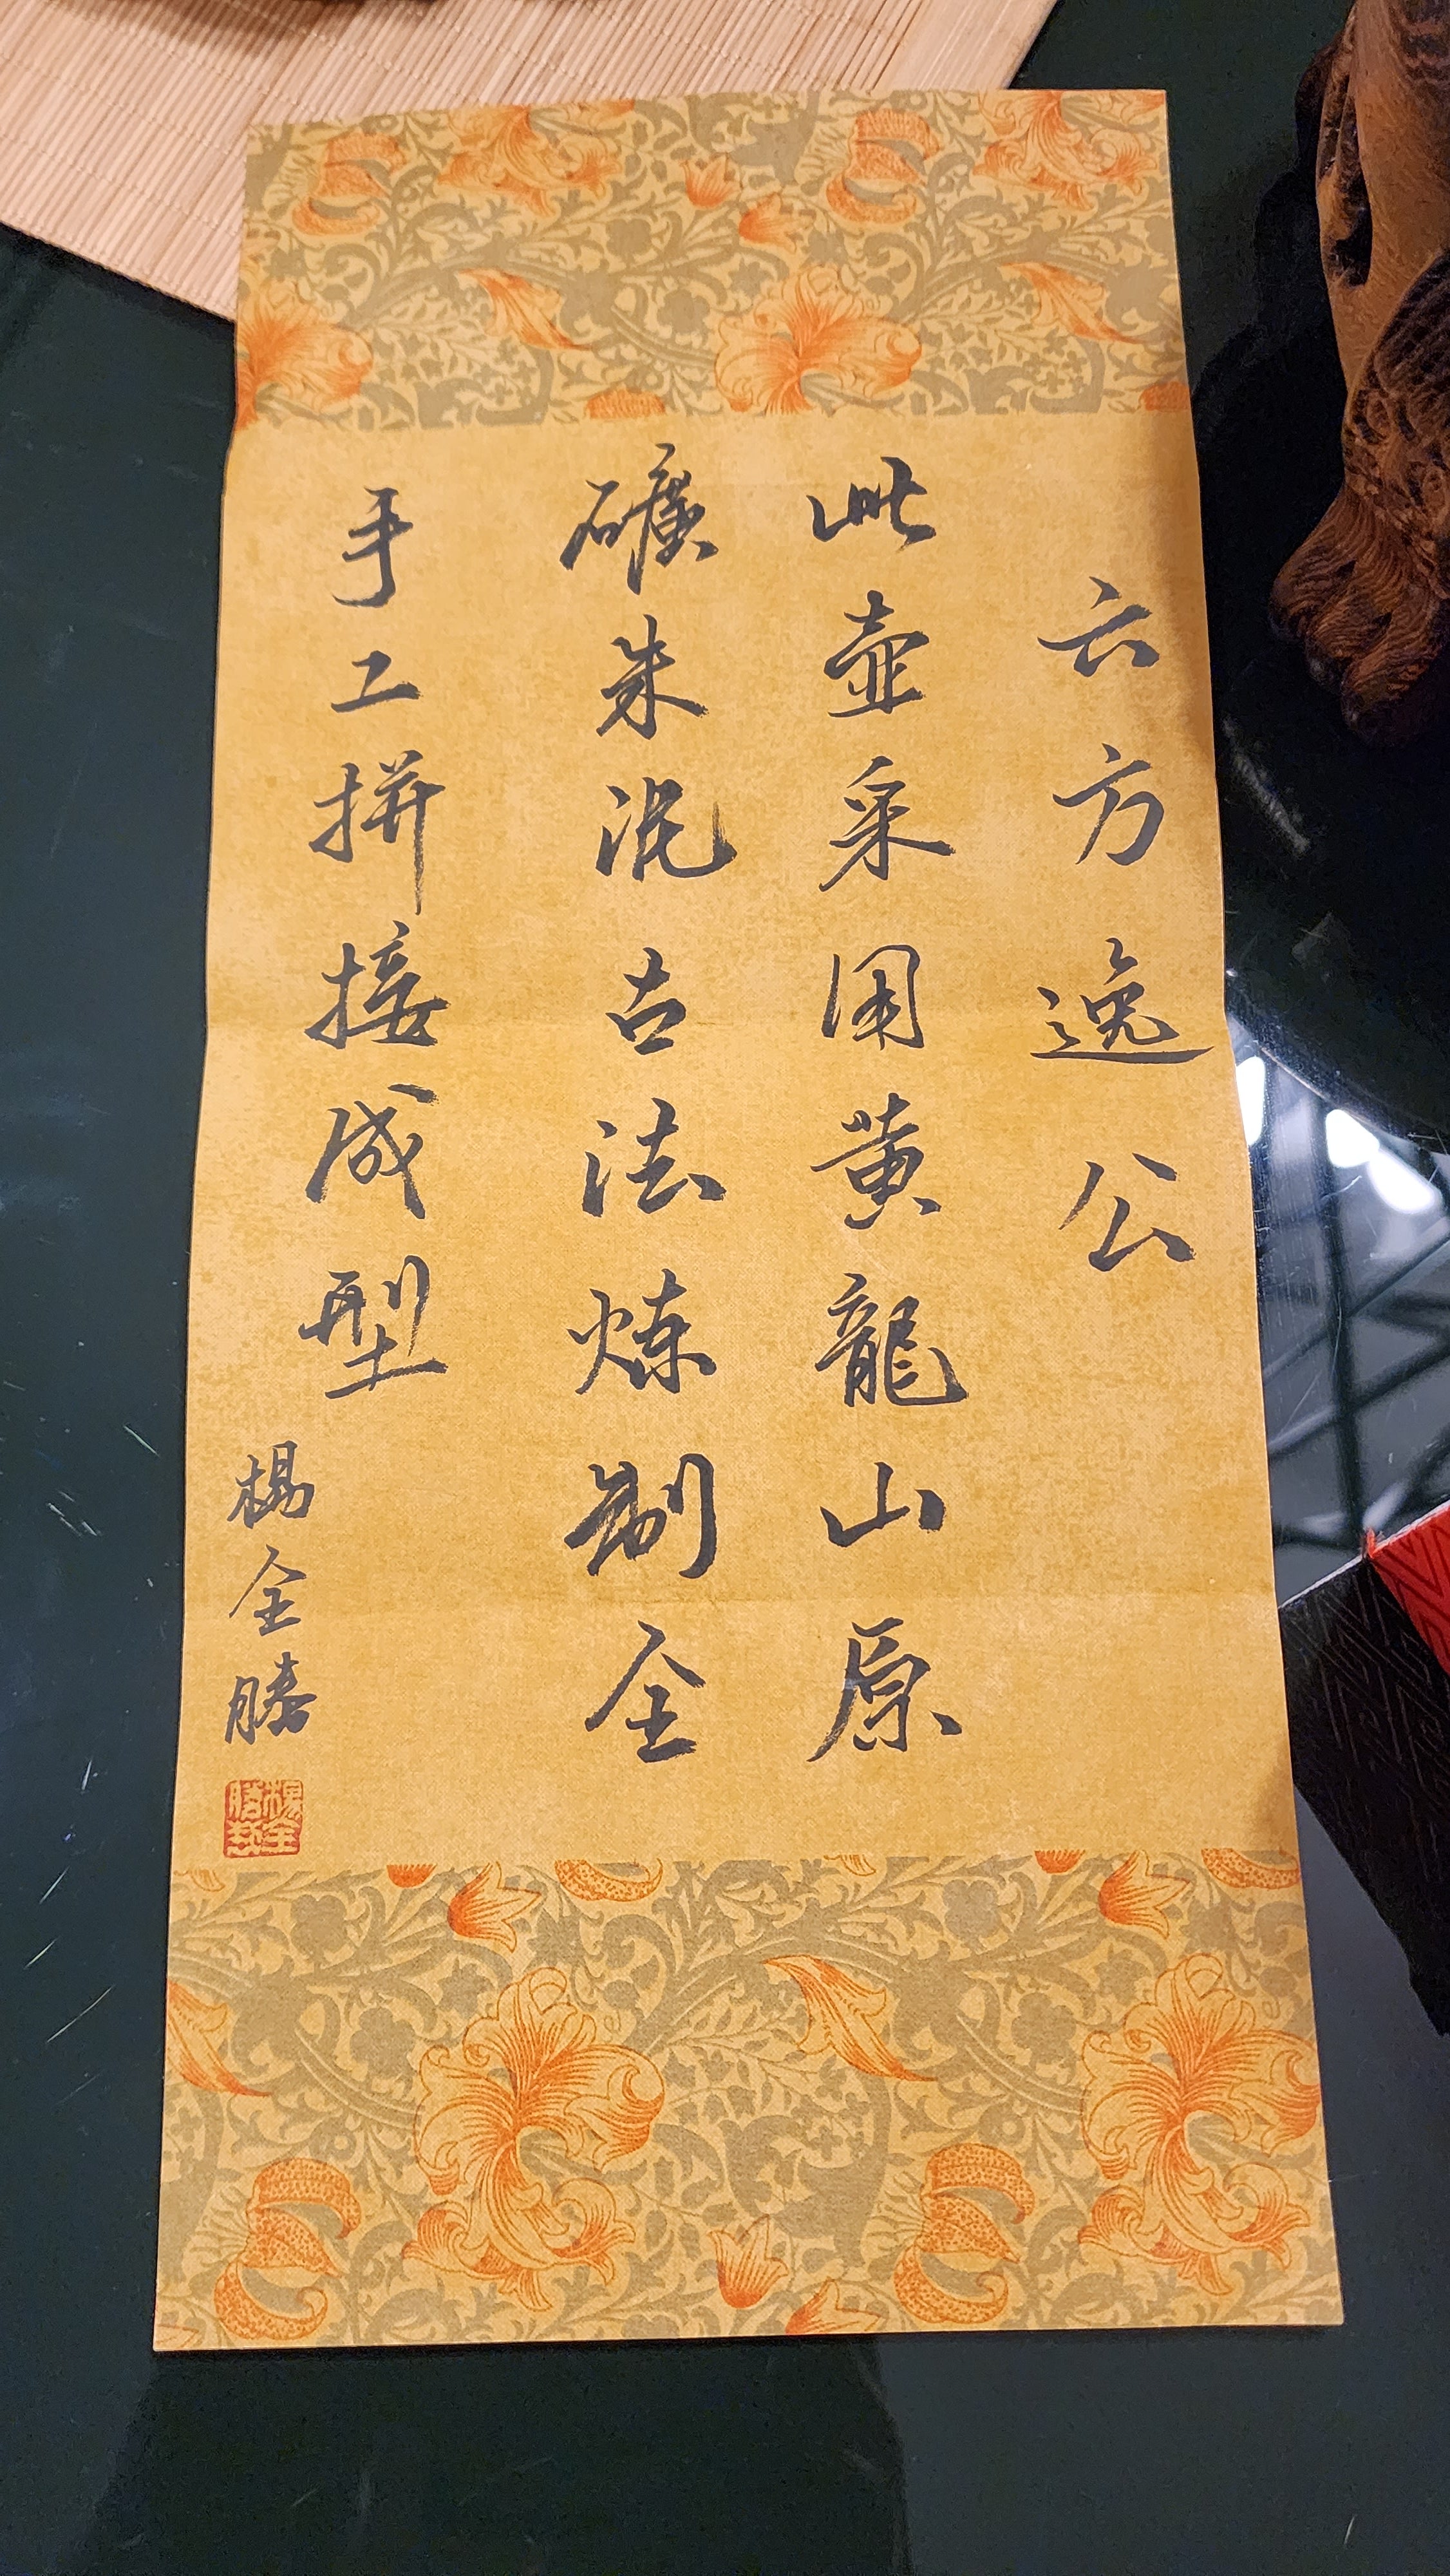 六方逸公
此壶采用黄龍山原
礦朱泥古法炼制全
手工拼接成型
楊全勝
楊全
勝